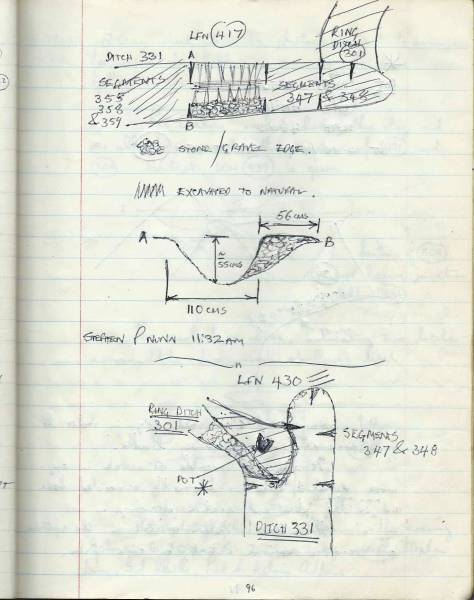 LFN 417
RING
DITCH
301
DITCH 331
A
SEGMENTS
355
358
& 359
SEGMENTS
347 & 348
B
STONE / GRAVEL EDGE.
EXCAVATED TO NATURAL.
56 CMS
A
B
55 CMS
110 CMS
STEPHEN P NUNN 11:32AM
LFN 430
RING DITCH
301
SEGMENTS
347 & 348
POT
DITCH 331
96